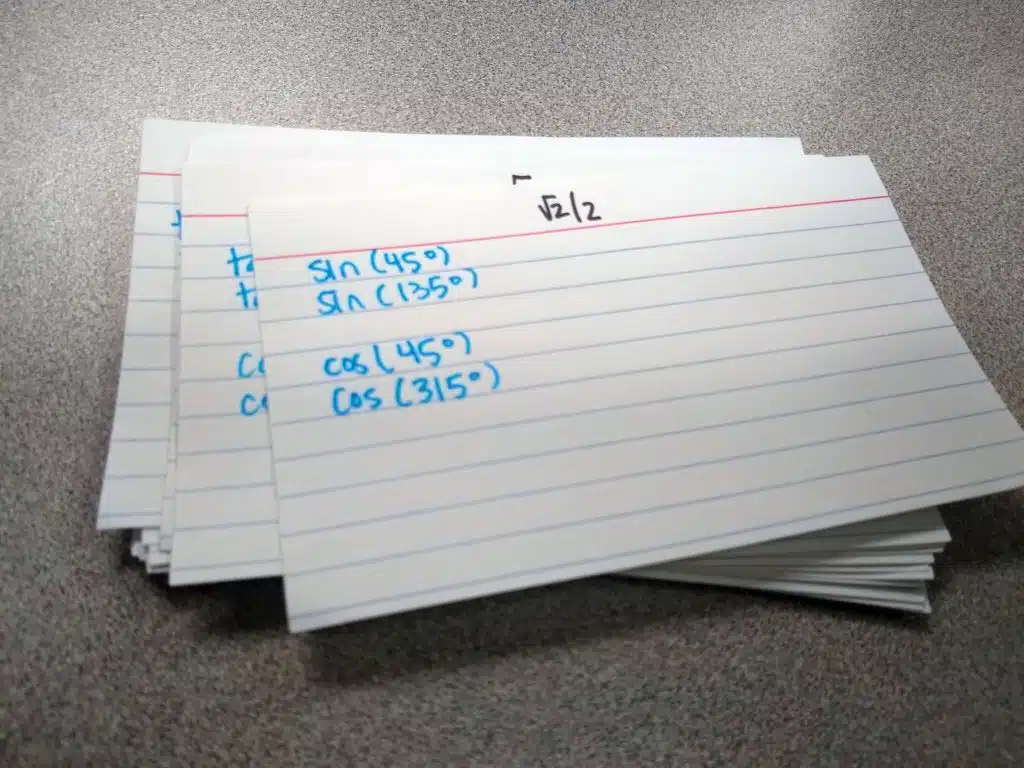 √2/2
sin (45°)
sin (135°)
cos (45°)
cos (315°)